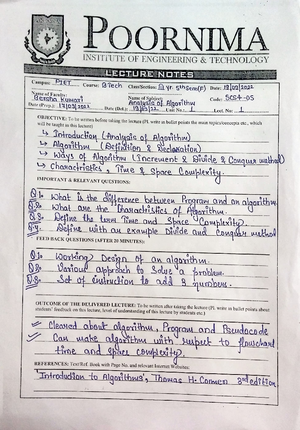 POORNIMA
INSTITUTE OF ENGINEERING & TECHNOLOGY
LECTURE NOTES
Campus: PIET Course: B Tech Class/Section: III yr. 5th Sem(F) Date:
Name of Faculty: Name of Subject: Code: 5CS4-05
Geerisha Kumari Analysis of Algorithm
Date (Prep.): Date (Del.): Lect. No: 1
OBJECTIVE: To be written before taking the lecture (Pl. write in bullet points the main topics/concepts etc., which
will be taught in this lecture)
→ Introduction (Analysis of Algorithm)
→ Algorithm (Definition & Declaration)
→ Ways of Algorithm (Increment & Divide & Conquer method)
→ Charactristics, Time & Space Complexity.
IMPORTANT & RELEVANT QUESTIONS:
Q.1:- What is the difference between Program and an algorithm.
Q.2:- What are the Charactristics of Algorithm.
Q.3:- Define the term Time and Space Complexity.
Q.4:- Define with an example Divide and Conquer method
FEED BACK QUESTIONS (AFTER 20 MINUTES):
Q.1:- Working/ Design of an algorithm.
Q.2:- Various approach to Solve a problem.
Q.3:- Set of instruction to add 3 numbers.
OUTCOME OF THE DELIVERED LECTURE: To be written after taking the lecture (Pl. write in bullet points about
students' feedback on this lecture, level of understanding of this lecture by students etc.)
✓ Cleared about algorithm, Program and Pseudocode
✓ Can make algorithm with respect to flowchart
time and space complexity.
REFERENCES: Text/Ref. Book with Page No. and relevant Internet Websites:
'Introduction to Algorithms', Thomas H. Cormen 3rd edition.